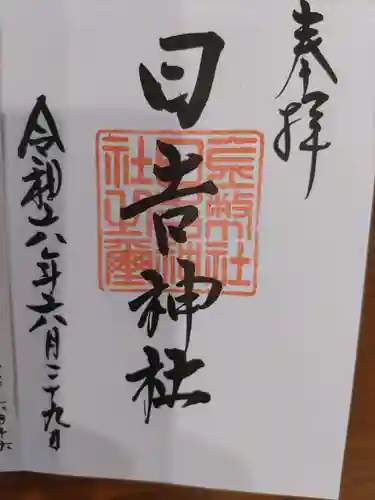 奉拝
日吉神社
令和六年六月二十九日